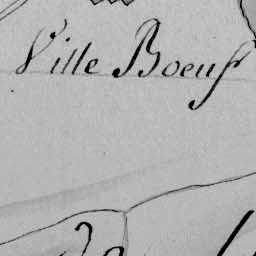 Ville Boeuf